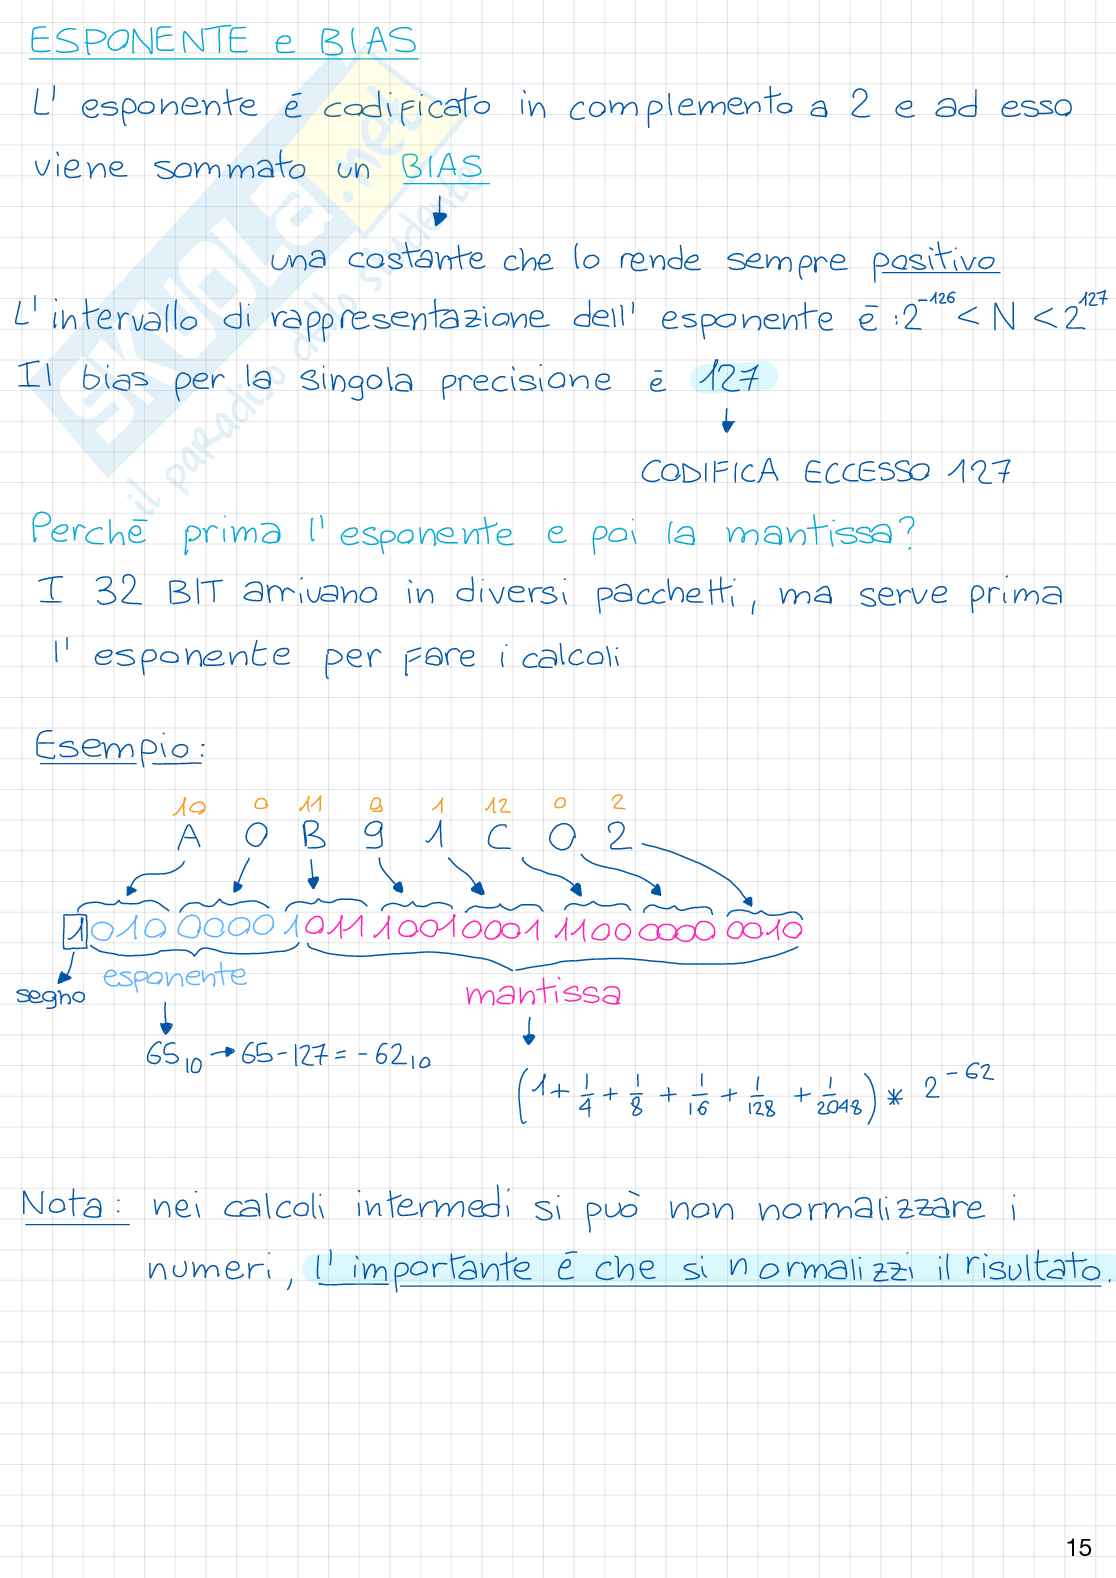 ESPONENTE e BIAS
L' esponente ē codificato in complemento a 2 e ad esso
viene sommato un BIAS
una costante che lo rende sempre positivo
L'intervallo di rappresentazione dell' esponente ē : 2^-126 < N < 2^127
Il bias per la singola precisione ē 127
CODIFICA ECCESSO 127
Perchē prima l'esponente e poi la mantissa?
I 32 BIT arrivano in diversi pacchetti, ma serve prima
l' esponente per fare i calcoli
Esempio:
10 0 11 9 1 12 0 2
A 0 B 9 1 C 0 2
1010 0000 1011 1001 0001 1100 0000 0010
segno esponente mantissa
65₁₀ → 65-127 = -62₁₀
(1 + 1/4 + 1/8 + 1/16 + 1/128 + 1/2048) * 2^-62
Nota: nei calcoli intermedi si può non normalizzare i
numeri, l'importante ē che si normalizzi il risultato.
15
SKUOLA.net
il paradiso dello studente